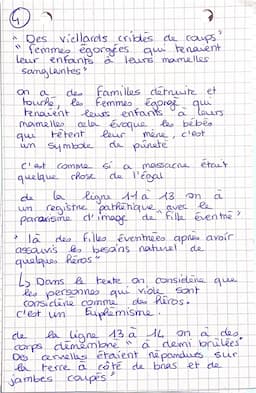 4)
" Des viellards criblés de coups"
" femmes égorgées qui tenaient
leur enfants à leurs mamelles
sanglantes"
on a des familles détruite et
touché, les femmes égorgé qui
tenaient leurs enfants à leurs
mamelles cela évoque les bébés
qui têtent leur mère, c'est
un symbole de pureté
C'est comme si a massacre était
quelque chose de l'égal
de la ligne 11 à 13 on a
un registre pathétique avec le
d'image de "fille éventré"
" là des filles éventrées après avoir
assouvis les besoins naturel de
quelques héros"
↳ Dans le texte on considère que
les personnes qui viole sont
considère comme des héros.
c'est un Euphémisme.
de la ligne 13 à 14 on a des
corps démembré " à demi brûlées"
Des cervelles étaient répandues sur
la terre à côté de bras et de
jambes coupés"